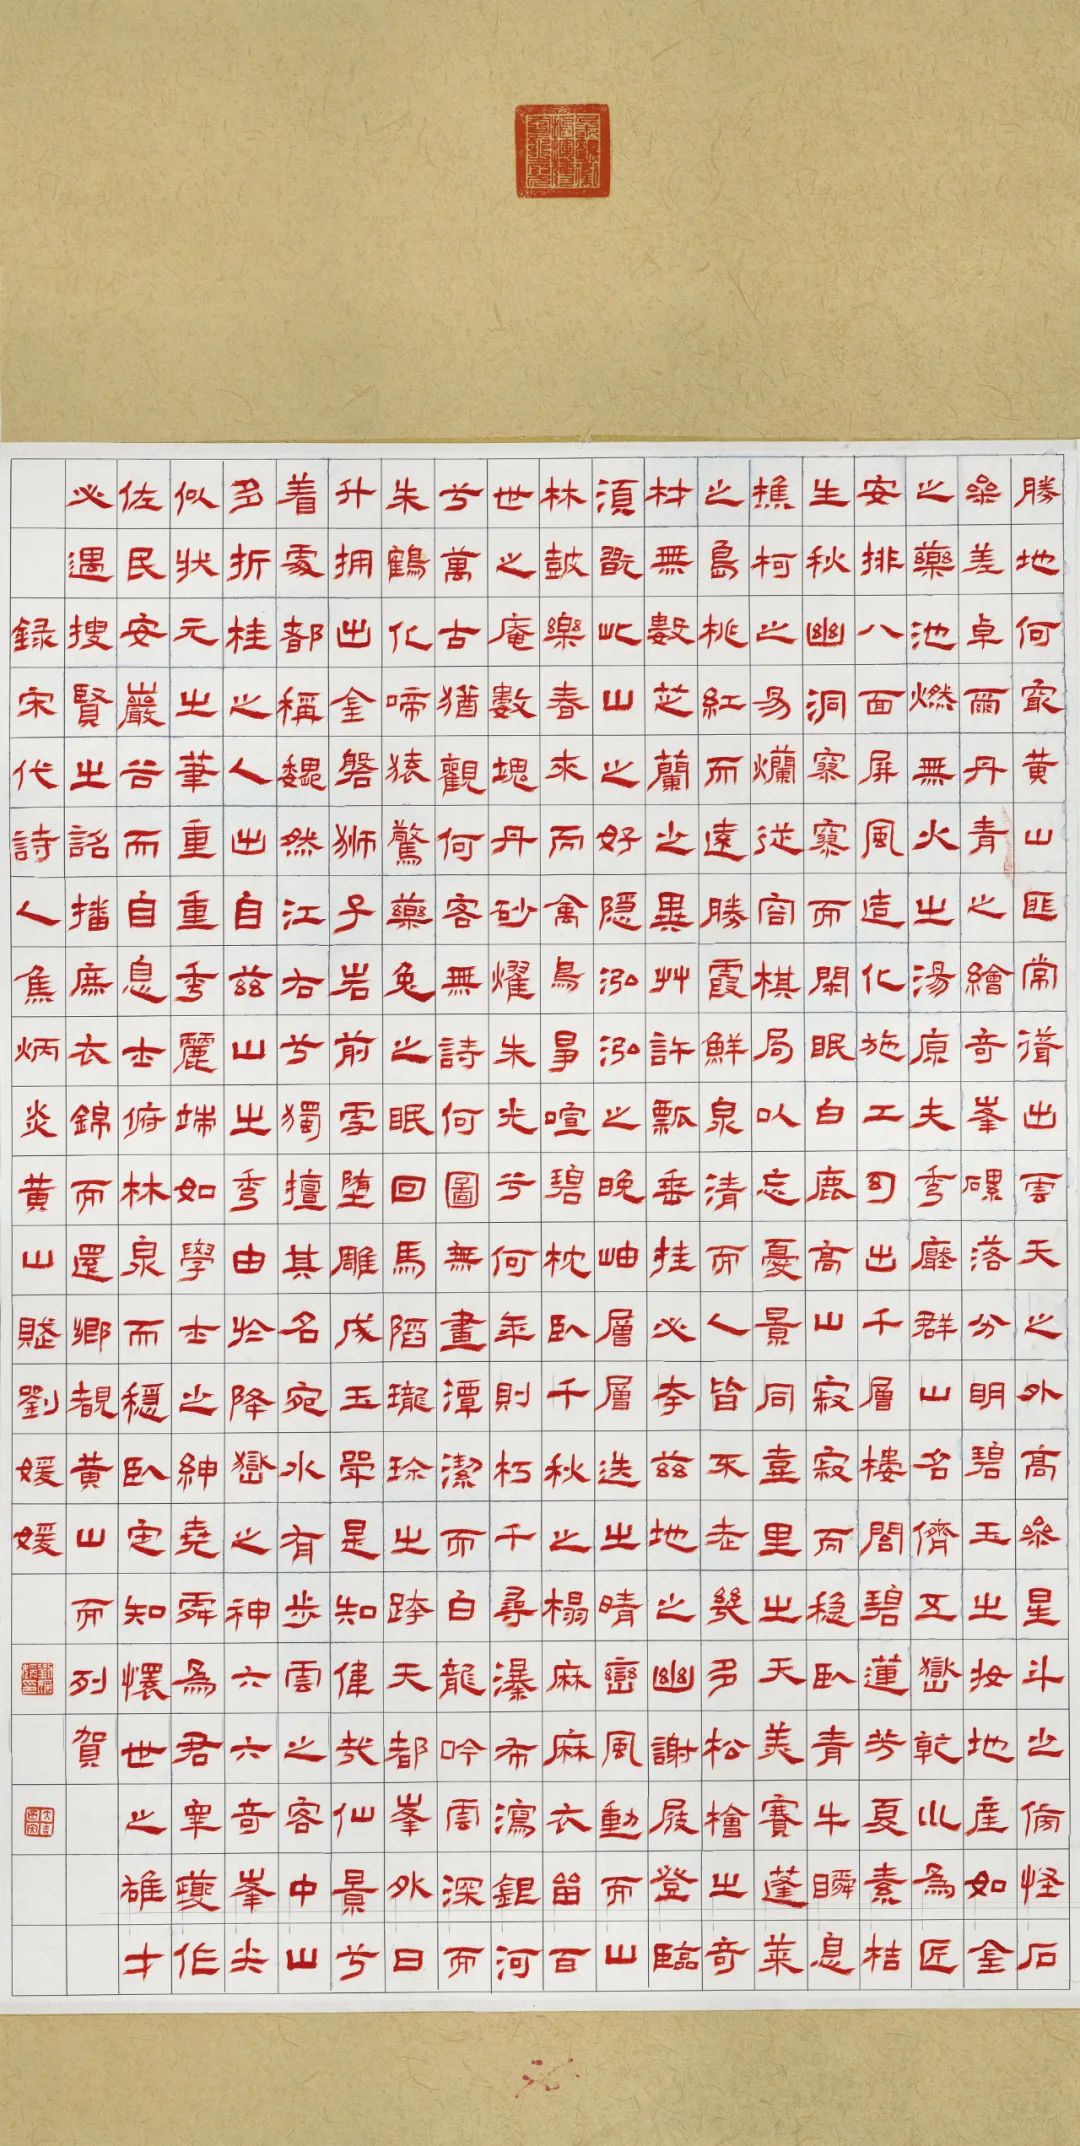 勝地何最黄山匪常出雲天之外高參星斗之傍怪石
參差卓爾丹青之繪奇峯磥落分明碧玉之妝地產如金
之藥池燃無火之湯原夫秀壓群山名儕五嶽乾巛為匠
安排八面屏風造化施工幻出千層樓閣碧蓮芳夏素桔
生秋幽洞寥寥而閑眠白鹿高山寂寂而穏卧青牛瞬息
樵柯之易爛從容棋局以忘憂景同壺里之天美賽蓬萊
之島桃紅而遠勝霞鮮泉清而人皆不老幾多松檜之奇
材無數芝蘭之異艸許瓢垂挂必李兹地之幽謝屐登臨
須翫此山之好隱泓泓之晚岫層層迭之晴巒風動而山
林鼓樂春來而禽鳥爭喧碧枕卧千秋之榻麻麻衣笛百
世之庵數塊丹砂燿朱光兮何年則朽千尋瀑布瀉銀河
兮萬古猶觀何客無詩何圖無畫潭潔而白龍吟雲深而
朱鶴化啼猿驚藥兔之眠回馬蹈瓏玲之跨天都峯外日
升拥出金磐狮子岩前雪堕雕成玉罕是知偉哉仙景兮
着處都稱魏然江右兮獨擅其名宛水有步雲之客中山
多折桂之人出自兹山之秀由於降嶽之神六六奇峯尖
似狀元之筆重重秀麗端如學士之紳堯舜為君皐夔作
佐民安巖谷而自息士俯林泉而穩卧定知懷世之雄才
必遇搜賢之詔播庶衣錦而還鄉覩黄山而列賀
録宋代詩人焦炳炎黄山賦劉媛媛